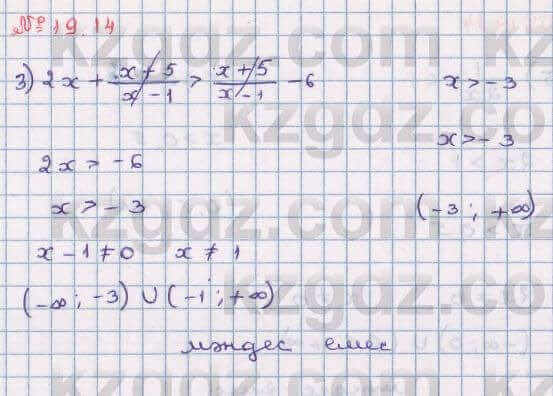 № 19.14
3) 2x + \frac{x+5}{x-1} > \frac{x+5}{x-1} - 6    x > -3
x > -3
2x > -6
x > -3    (-3; +∞)
x - 1 ≠ 0    x ≠ 1
(-∞; -3) ∪ (-1; +∞)
мәндес емес
kzgdz.com